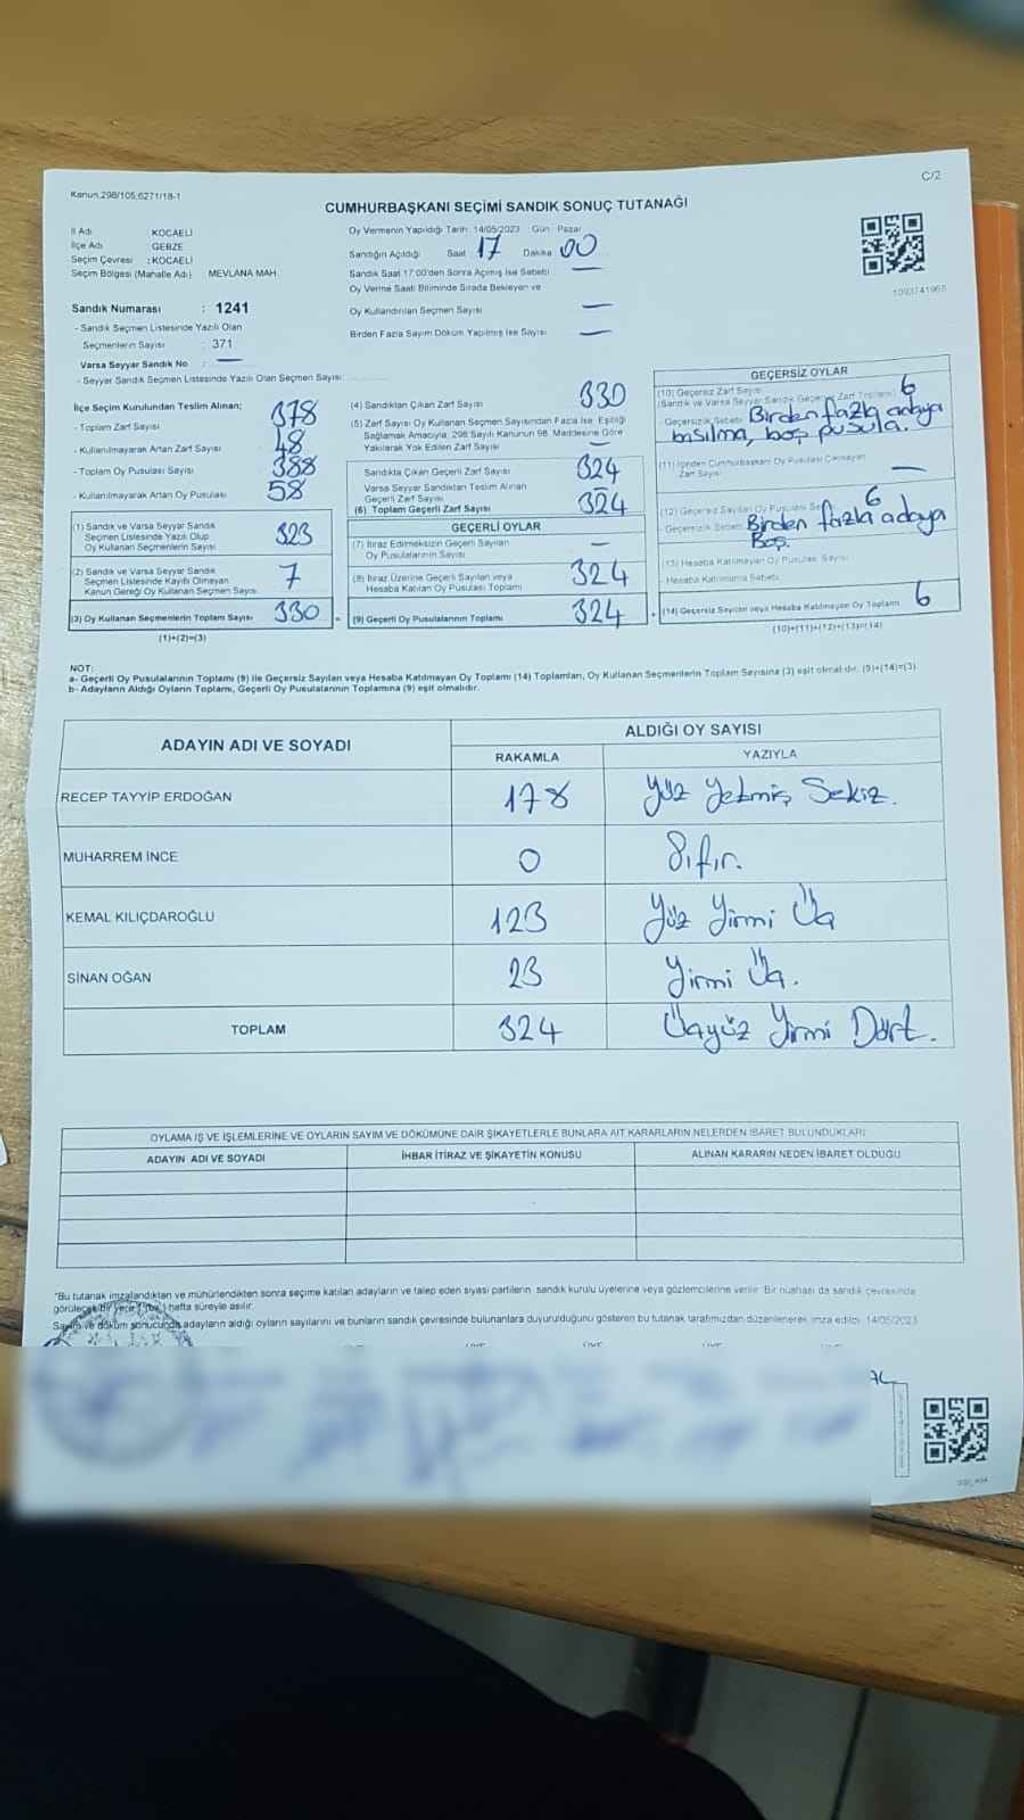 Kanun,298/105,6271/18-1
C/2
CUMHURBAŞKANI SEÇİMİ SANDIK SONUÇ TUTANAĞI
İl Adı : KOCAELİ
İlçe Adı : GEBZE
Seçim Çevresi : KOCAELİ
Seçim Bölgesi (Mahalle Adı) MEVLANA MAH.
Sandık Numarası : 1241
- Sandık Seçmen Listesinde Yazılı Olan
Seçmenlerin Sayısı : 371
Varsa Seyyar Sandık No : —
- Seyyar Sandık Seçmen Listesinde Yazılı Olan Seçmen Sayısı:
Oy Vermenin Yapıldığı Tarih: 14/05/2023 Gün: Pazar
Sandığın Açıldığı Saat 17 Dakika 00
Sandık Saat 17:00'den Sonra Açılmış İse Sebebi —
Oy Verme Saati Bitiminde Sırada Bekleyen ve
Oy Kullandırılan Seçmen Sayısı —
Birden Fazla Sayım Döküm Yapılmış İse Sayısı —
1093741965
İlçe Seçim Kurulundan Teslim Alınan;
- Toplam Zarf Sayısı 378
- Kullanılmayarak Artan Zarf Sayısı 48
- Toplam Oy Pusulası Sayısı 388
- Kullanılmayarak Artan Oy Pusulası 58
(1) Sandık ve Varsa Seyyar Sandık
Seçmen Listesinde Yazılı Olup
Oy Kullanan Seçmenlerin Sayısı 323
(2) Sandık ve Varsa Seyyar Sandık
Seçmen Listesinde Kayıtlı Olmayan
Kanun Gereği Oy Kullanan Seçmen Sayısı 7
(3) Oy Kullanan Seçmenlerin Toplam Sayısı 330
(1)+(2)=(3)
(4) Sandıktan Çıkan Zarf Sayısı 330
(5) Zarf Sayısı Oy Kullanan Seçmen Sayısından Fazla İse, Eşitliği
Sağlamak Amacıyla, 298 Sayılı Kanunun 98. Maddesine Göre
Yakılarak Yok Edilen Zarf Sayısı —
Sandıkta Çıkan Geçerli Zarf Sayısı 324
Varsa Seyyar Sandıktan Teslim Alınan
Geçerli Zarf Sayısı —
(6) Toplam Geçerli Zarf Sayısı 324
GEÇERLİ OYLAR
(7) İtiraz Edilmeksizin Geçerli Sayılan
Oy Pusulalarının Sayısı —
(8) İtiraz Üzerine Geçerli Sayılan veya
Hesaba Katılan Oy Pusulası Toplamı 324
(9) Geçerli Oy Pusulalarının Toplamı 324
GEÇERSİZ OYLAR
(10) Geçersiz Zarf Sayısı 6
(Sandık ve Varsa Seyyar Sandık Geçersiz Zarf Toplamı)
Geçersizlik Sebebi Birden fazla adaya
basılma, boş pusula.
(11) İçinden Cumhurbaşkanı Oy Pusulası Çıkmayan
Zarf Sayısı —
(12) Geçersiz Sayılan Oy Pusulası 6
Geçersizlik Sebebi Birden fazla adaya
Boş.
(13) Hesaba Katılmayan Oy Pusulası Sayısı
Hesaba Katılmama Sebebi
(14) Geçersiz Sayılan veya Hesaba Katılmayan Oy Toplamı 6
(10)+(11)+(12)+(13)=(14)
NOT:
a- Geçerli Oy Pusulalarının Toplamı (9) ile Geçersiz Sayılan veya Hesaba Katılmayan Oy Toplamı (14) Toplamları, Oy Kullanan Seçmenlerin Toplam Sayısına (3) eşit olmalıdır. (9)+(14)=(3)
b- Adayların Aldığı Oyların Toplamı, Geçerli Oy Pusulalarının Toplamına (9) eşit olmalıdır.
ADAYIN ADI VE SOYADI
ALDIĞI OY SAYISI
RAKAMLA YAZIYLA
RECEP TAYYİP ERDOĞAN 178 Yüz Yetmiş Sekiz.
MUHARREM İNCE 0 Sıfır.
KEMAL KILIÇDAROĞLU 123 Yüz Yirmi Üç
SİNAN OĞAN 23 Yirmi Üç.
TOPLAM 324 Üçyüz Yirmi Dört.
OYLAMA İŞ VE İŞLEMLERİNE VE OYLARIN SAYIM VE DÖKÜMÜNE DAİR ŞİKAYETLERLE BUNLARA AİT KARARLARIN NELERDEN İBARET BULUNDUKLARI
ADAYIN ADI VE SOYADI İHBAR İTİRAZ VE ŞİKAYETİN KONUSU ALINAN KARARIN NEDEN İBARET OLDUĞU
"Bu tutanak imzalandıktan ve mühürlendikten sonra seçime katılan adayların ve talep eden siyasi partilerin, sandık kurulu üyelerine veya gözlemcilerine verilir. Bir nüshası da sandık çevresinde
görülecek bir yere 1 (bir) hafta süreyle asılır.
Sayım ve döküm sonucunda adayların aldığı oyların sayılarını ve bunların sandık çevresinde bulunanlara duyurulduğunu gösteren bu tutanak tarafımızdan düzenlenerek imza edildi. 14/05/2023